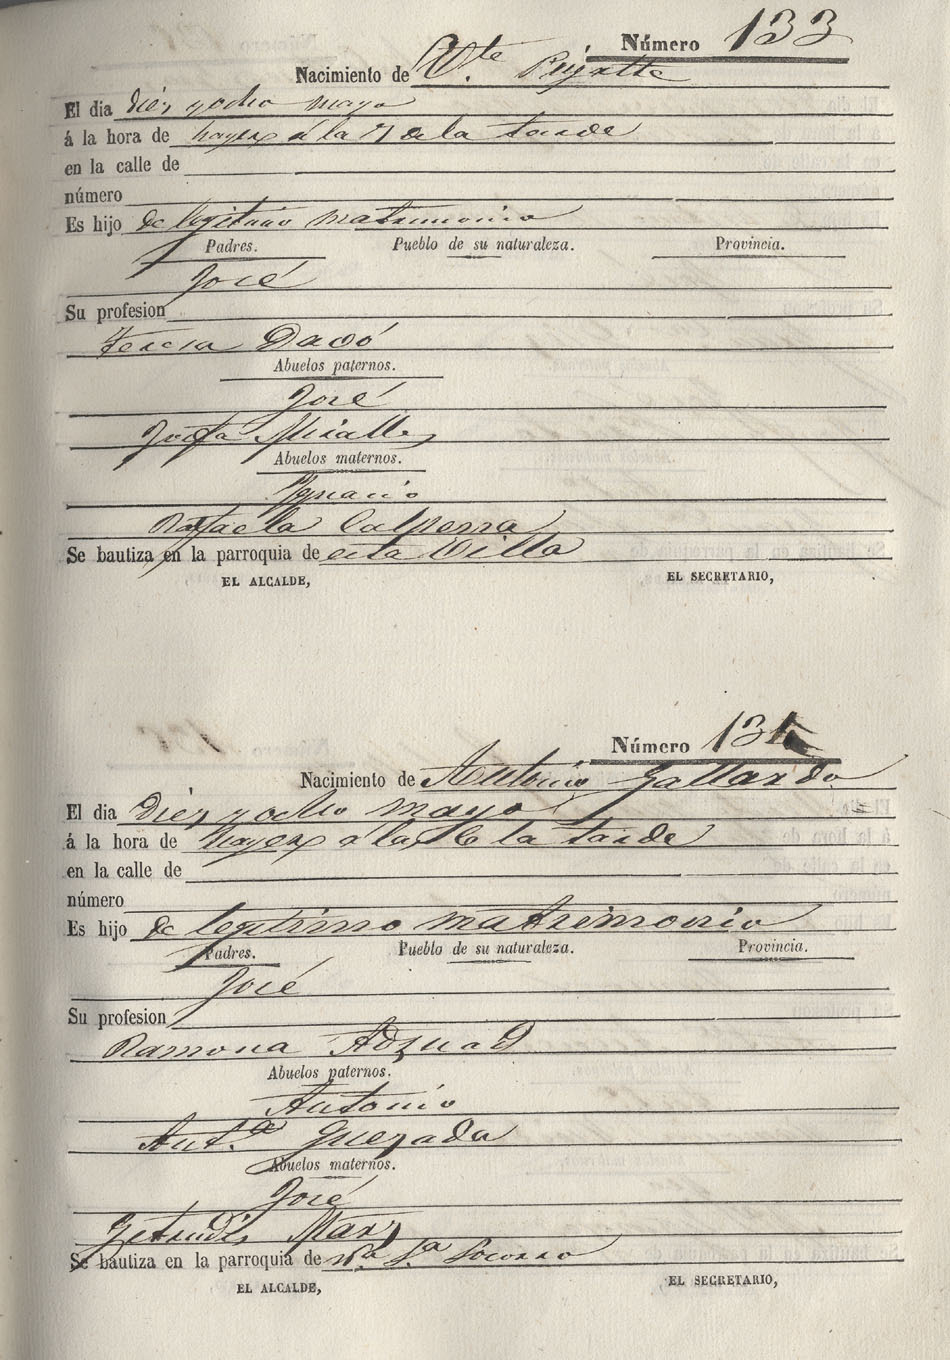 Número 133
Nacimiento de Vte Puigcette
El dia diez y ocho mayo
á la hora de hayer á la 7 de la tarde
en la calle de
número
Es hijo de legitimo matrimonio
Padres. Pueblo de su naturaleza. Provincia.
José
Su profesion
Teresa Davó
Abuelos paternos.
José
Josefa Miralles
Abuelos maternos.
Ygnacio
Rafaela Calpena
Se bautiza en la parroquia de esta Villa
EL ALCALDE, EL SECRETARIO,
Número 134
Nacimiento de Antonio Gallardo
El dia diez y ocho mayo
á la hora de hayer á la 6 la tarde
en la calle de
número
Es hijo de legitimo matrimonio
Padres. Pueblo de su naturaleza. Provincia.
José
Su profesion
Ramona Aznar
Abuelos paternos.
Antonio
Ant.a Quezada
Abuelos maternos.
José
Getrudis Marz
Se bautiza en la parroquia de Na Sa Socorro
EL ALCALDE, EL SECRETARIO,